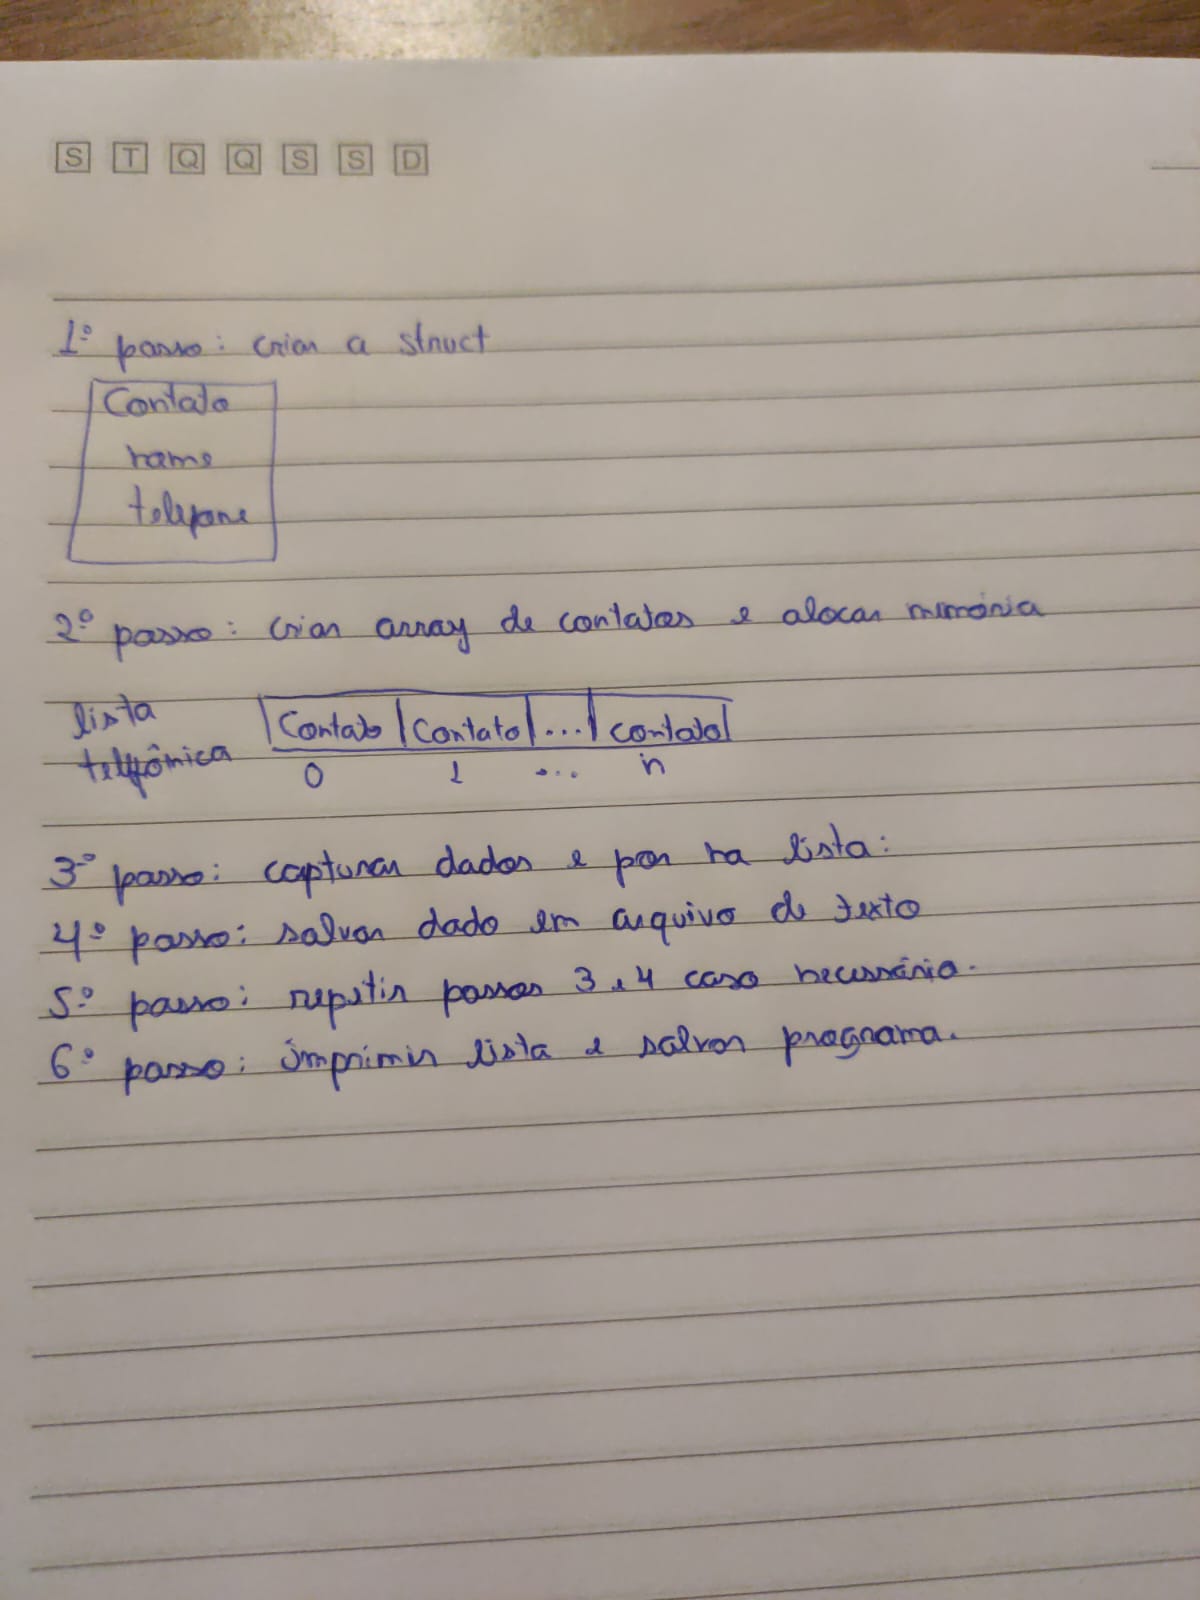 S T Q Q S S D
1º passo: criar a struct
Contato
nome
telefone
2º passo: criar array de contatos e alocar memória
lista
telefônica
Contato Contato ... contato
0 1 ... n
3º passo: capturar dados e por na lista:
4º passo: salvar dado em arquivo de texto
5º passo: repetir passos 3 e 4 caso necessário.
6º passo: imprimir lista e salvar programa.